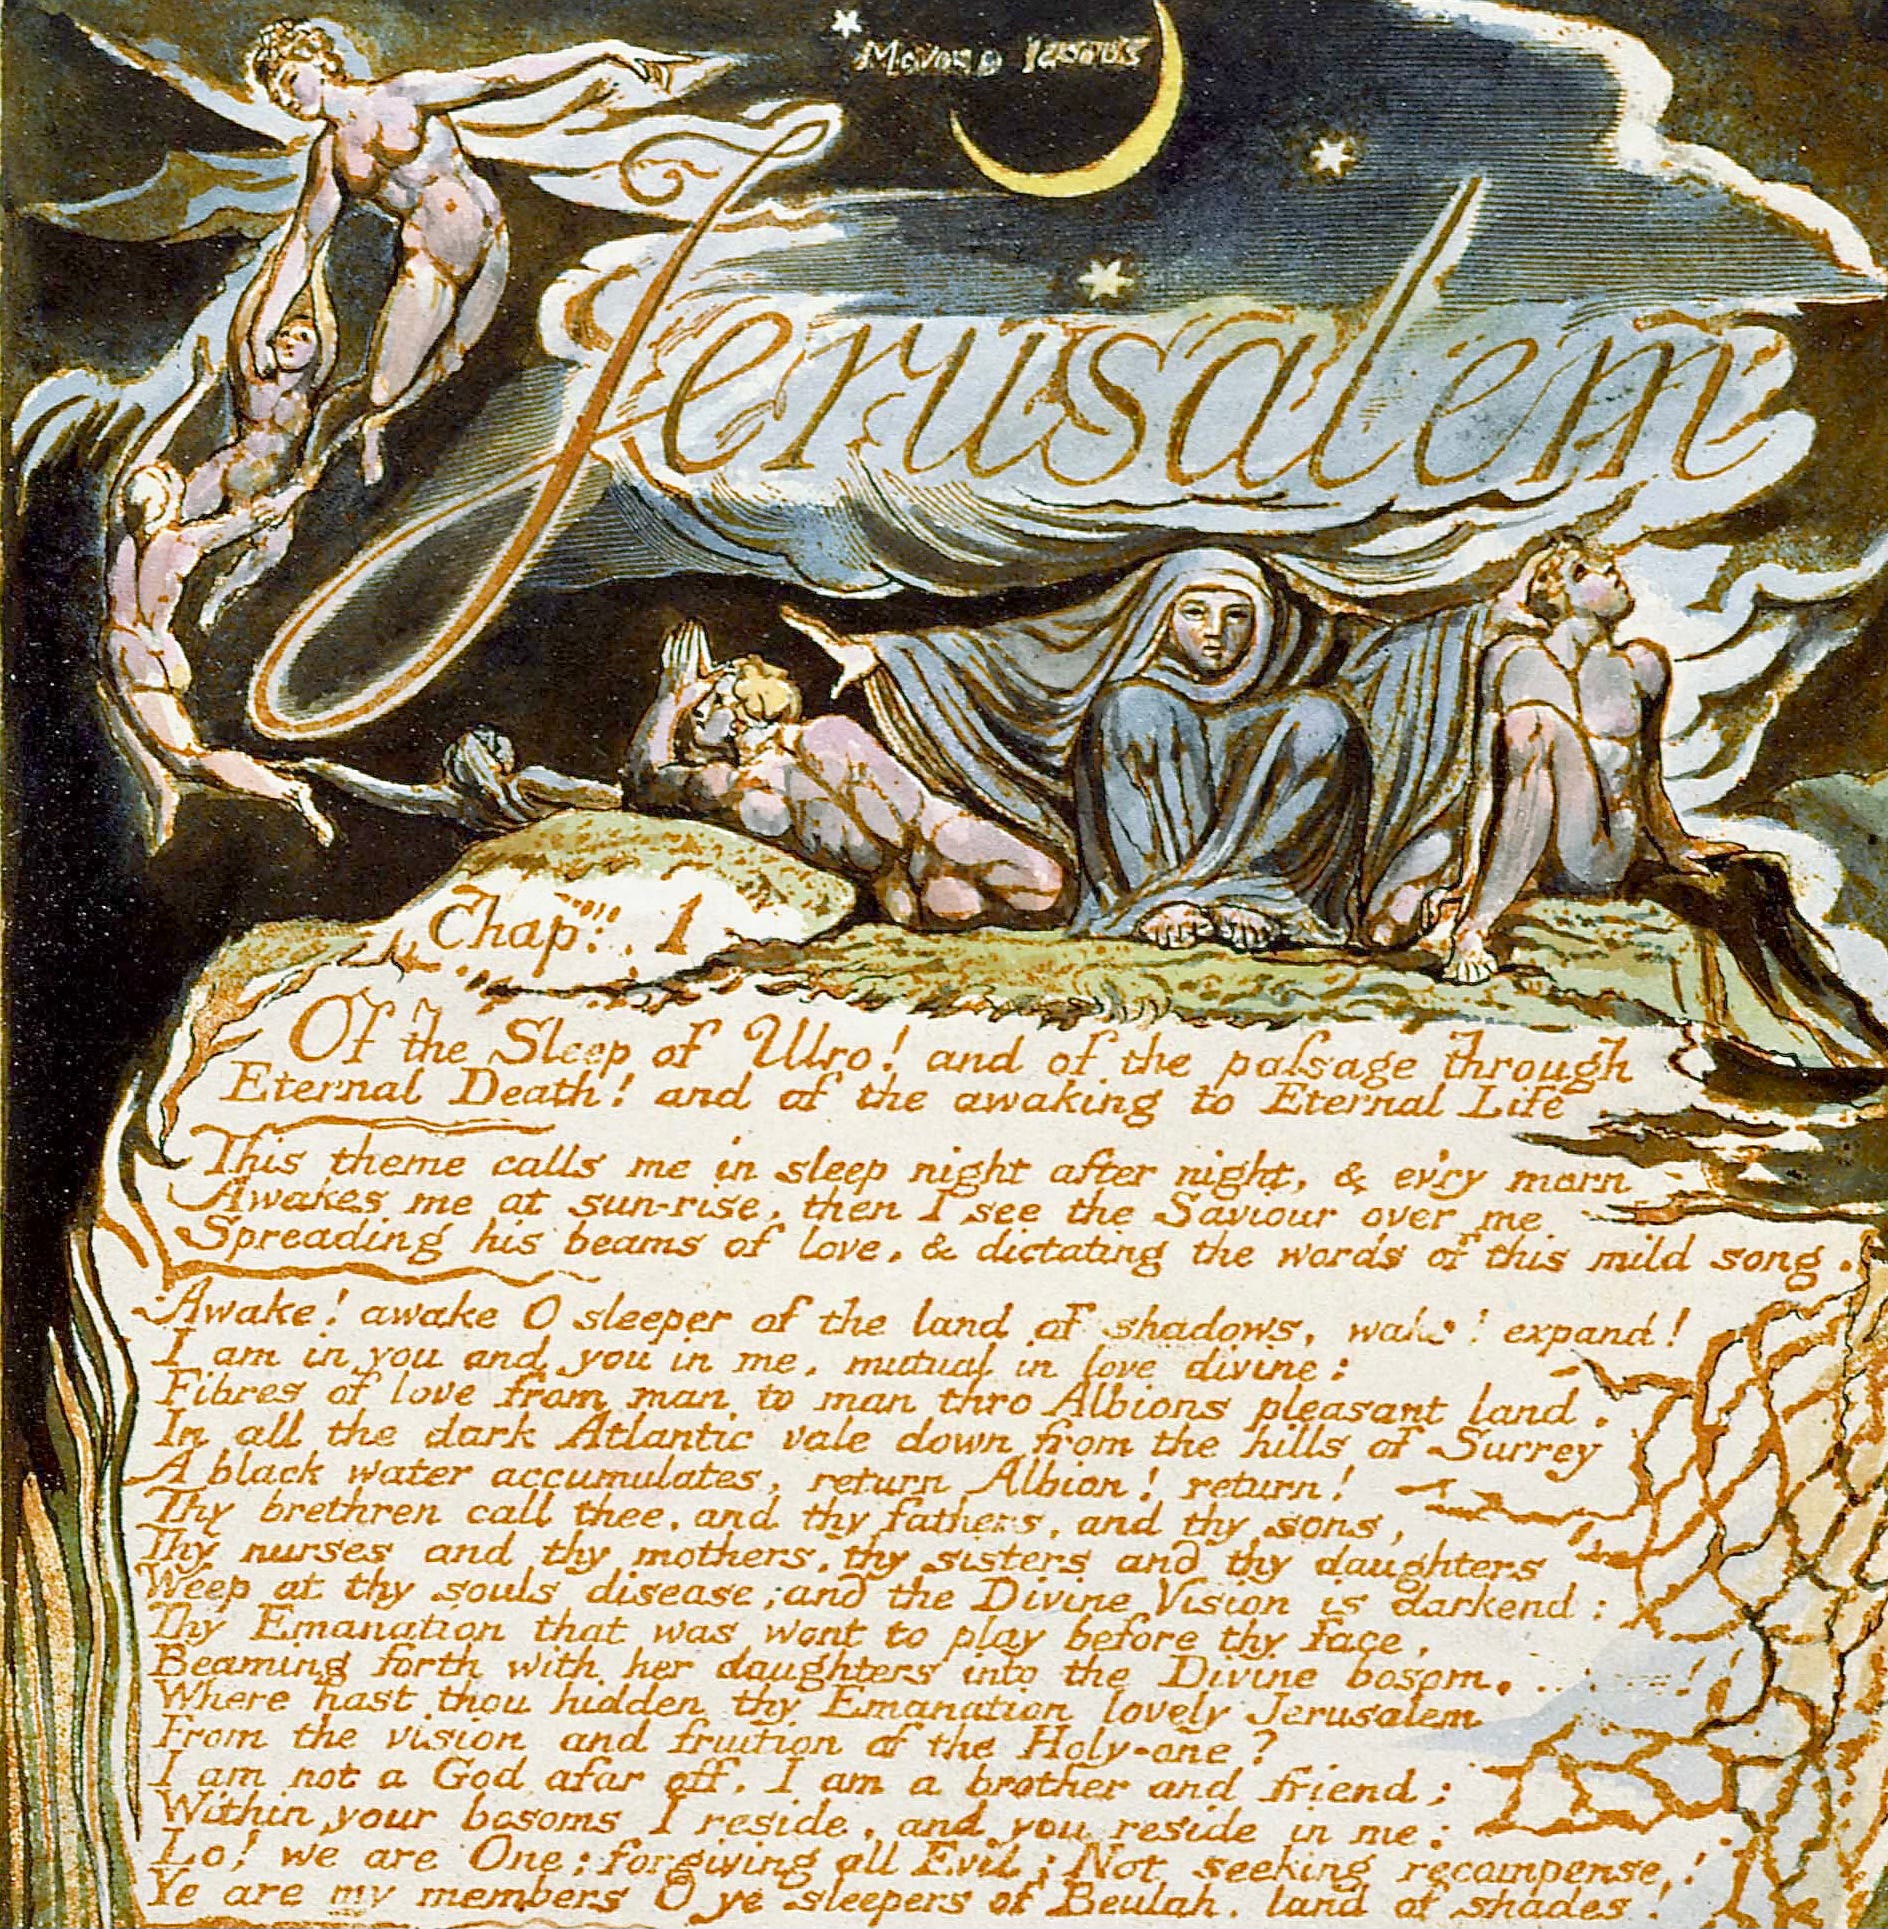 Jerusalem
Chap: 1
Of the Sleep of Ulro! and of the passage through
Eternal Death! and of the awaking to Eternal Life.
This theme calls me in sleep night after night, & ev'ry morn
Awakes me at sun-rise, then I see the Saviour over me
Spreading his beams of love, & dictating the words of this mild song.
Awake! awake O sleeper of the land of shadows, wake! expand!
I am in you and you in me, mutual in love divine:
Fibres of love from man to man thro Albions pleasant land.
In all the dark Atlantic vale down from the hills of Surrey
A black water accumulates, return Albion! return!
Thy brethren call thee, and thy fathers, and thy sons,
Thy nurses and thy mothers, thy sisters and thy daughters
Weep at thy souls disease, and the Divine Vision is darkend:
Thy Emanation that was wont to play before thy face,
Beaming forth with her daughters into the Divine bosom.
Where hast thou hidden thy Emanation lovely Jerusalem
From the vision and fruition of the Holy-one?
I am not a God afar off, I am a brother and friend;
Within your bosoms I reside, and you reside in me:
Lo! we are One; forgiving all Evil; Not seeking recompense,!
Ye are my members O ye sleepers of Beulah, land of shades!